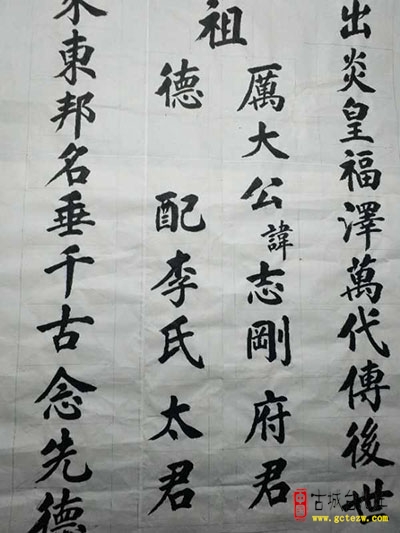 出炎皇福澤萬代傳後世
祖
厲大公諱志剛府君
德配李氏太君
東邦名垂千古念先德
中国
古城
www.gctezw.com